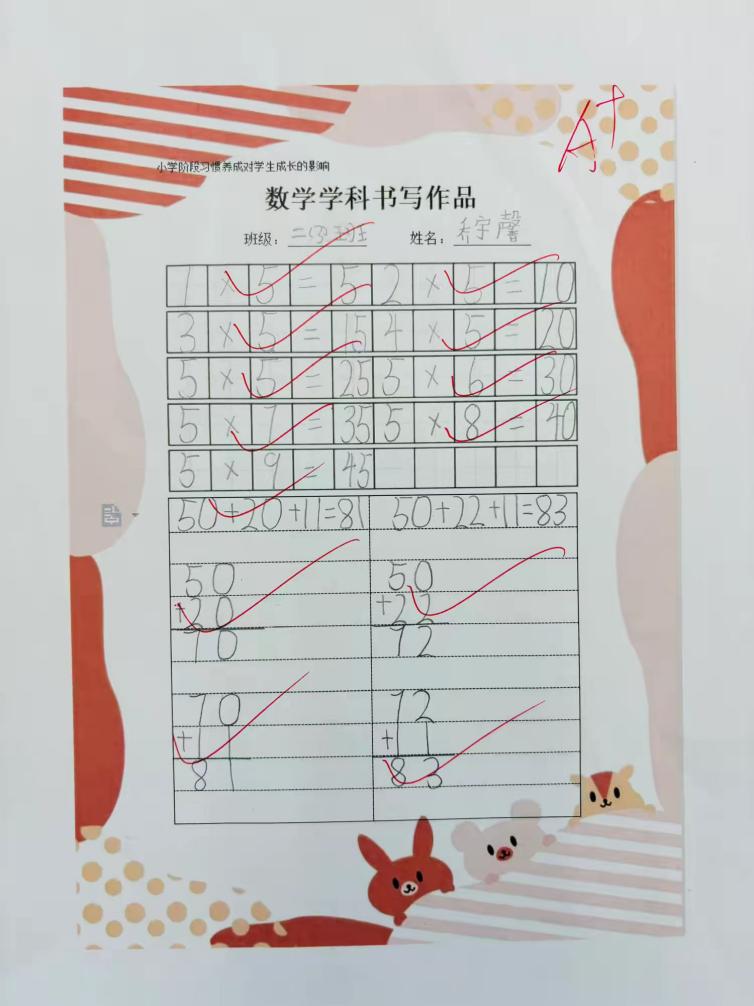 A+
小学阶段习惯养成对学生成长的影响
数学学科书写作品
班级： 姓名：
1×5=5 2×5=10
3×5=15 4×5=20
5×5=25 5×6=30
5×7=35 5×8=40
5×9=45
50+20+11=81 50+22+11=83
50 50
+20 +22
70 72
70 72
+11 +11
81 83